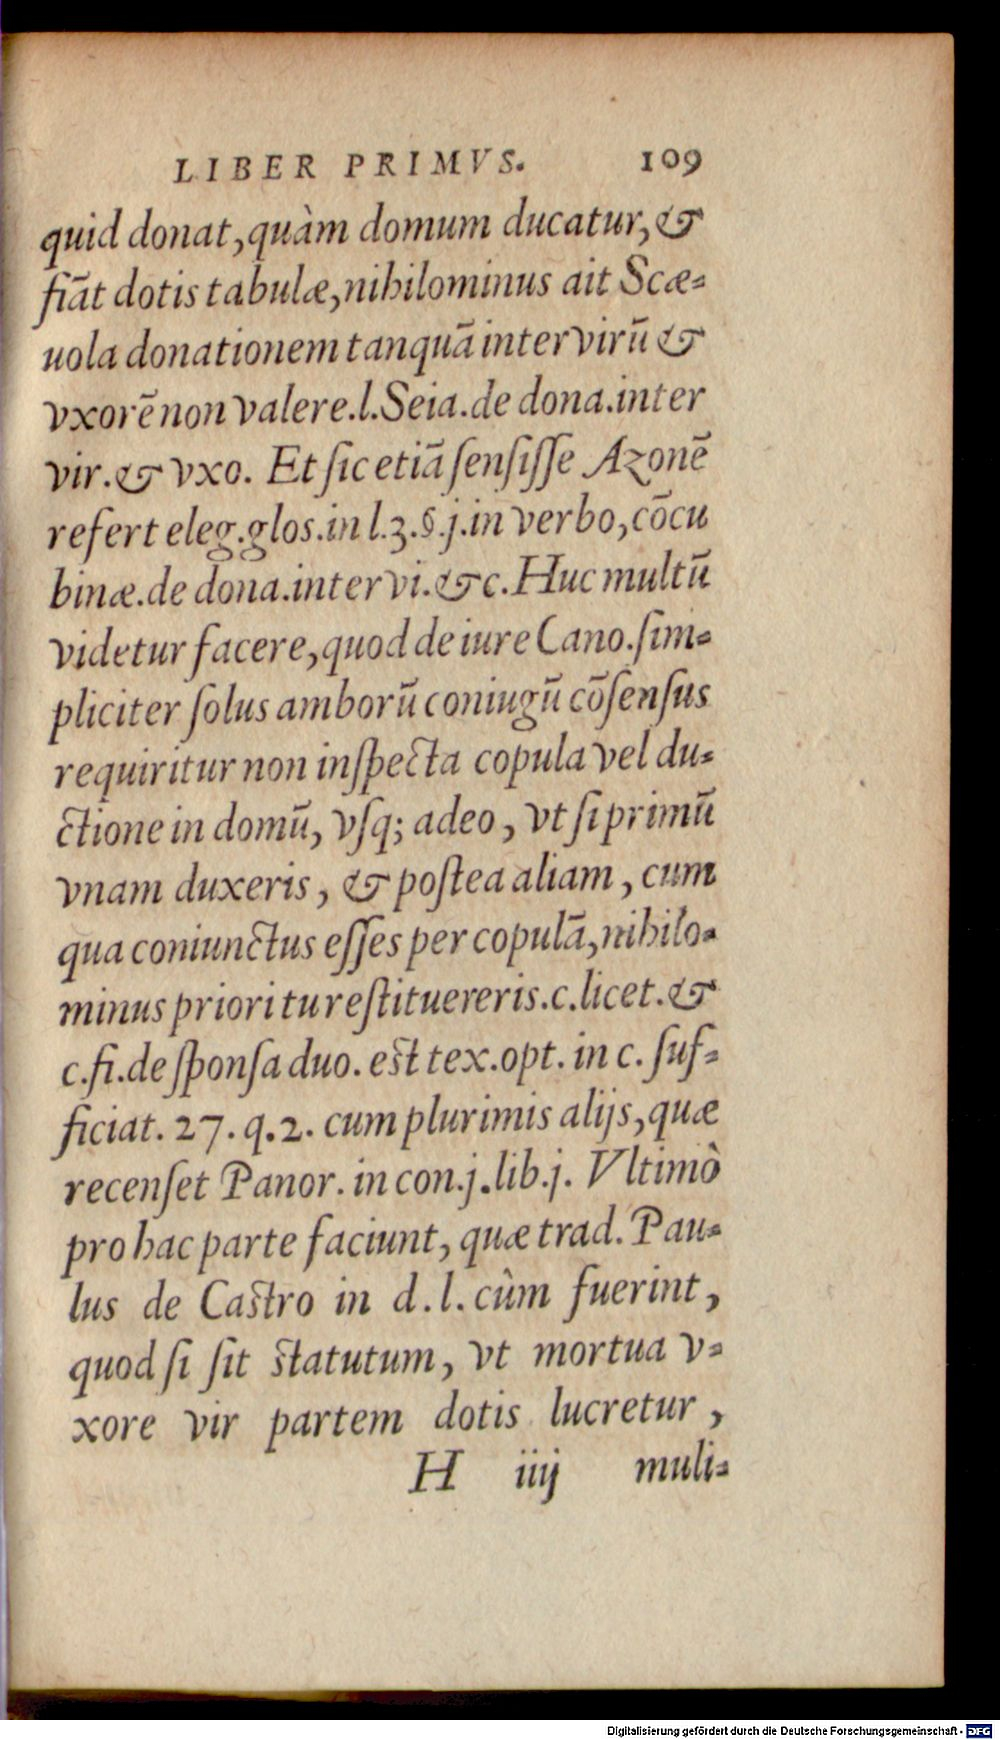 LIBER PRIMVS. 109
quid donat, quàm domum ducatur, &
fiāt dotis tabulæ, nihilominus ait Scæ-
uola donationem tanquā inter virū &
vxorē non valere. l. Seia. de dona. inter
vir. & vxo. Et ſic etiā ſenſiſſe Azonē
refert eleg. glos. in l. 3. §. j. in verbo, cōcu
binæ. de dona. inter vi. & c. Huc multū
videtur facere, quod de iure Cano. ſim-
pliciter ſolus amborū coniugū cōſenſus
requiritur non inſpecta copula vel du-
ctione in domū, vſq; adeo, vt ſi primū
vnam duxeris, & poſtea aliam, cum
qua coniunctus eſſes per copulā, nihilo-
minus priori tu reſtituereris. c. licet. &
c. fi. de ſponſa duo. eſt tex. opt. in c. ſuf-
ficiat. 27. q. 2. cum plurimis alijs, quæ
recenſet Panor. in con. j. lib. j. Vltimò
pro hac parte faciunt, quæ trad. Pau-
lus de Caſtro in d. l. cùm fuerint,
quod ſi ſit ſtatutum, vt mortua v-
xore vir partem dotis lucretur,
H iiij muli-
Digitalisierung gefördert durch die Deutsche Forschungsgemeinschaft - DFG